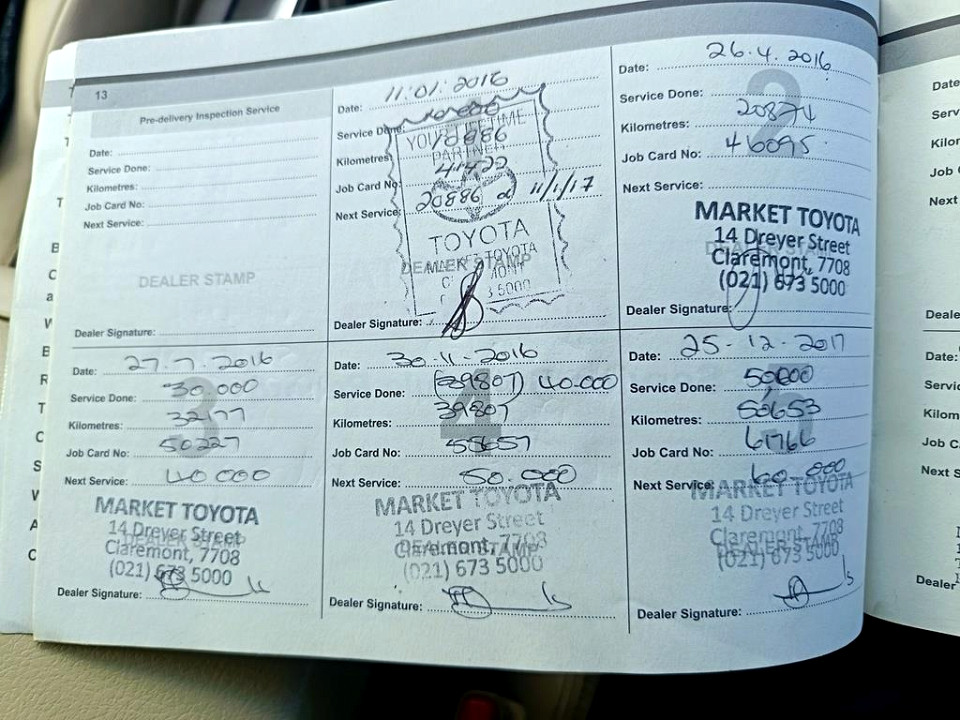 13
Pre-delivery Inspection Service
Date:
Service Done:
Kilometres:
Job Card No:
Next Service:
DEALER STAMP
Dealer Signature:
Date: 11.01.2016
Service Done:
Kilometres: 10886
Job Card No: 41422
Next Service: 20886 2 11/1/17
YOUR LIFETIME
PARTNER
TOYOTA
DEALER STAMP
5000
Dealer Signature:
2
Date: 26.4.2016
Service Done:
Kilometres: 20874
Job Card No: 46095
Next Service:
MARKET TOYOTA
14 Dreyer Street
Claremont, 7708
(021) 673 5000
Dealer Signature:
3
Date: 27.7.2016
Service Done: 30 000
Kilometres: 32177
Job Card No: 50227
Next Service: 40 000
MARKET TOYOTA
14 Dreyer Street
Claremont, 7708
(021) 673 5000
Dealer Signature:
4
Date: 30-11-2016
Service Done: (39807) 40.000
Kilometres: 39807
Job Card No: 55657
Next Service: 50.000
MARKET TOYOTA
14 Dreyer Street
Claremont, 7708
(021) 673 5000
Dealer Signature:
5
Date: 25-12-2017
Service Done: 50000
Kilometres: 50653
Job Card No: 61766
Next Service: 60.000
MARKET TOYOTA
14 Dreyer Street
Claremont, 7708
(021) 673 5000
Dealer Signature:
Date
Next
Date:
Kilom
Job C
Next S
Dealer